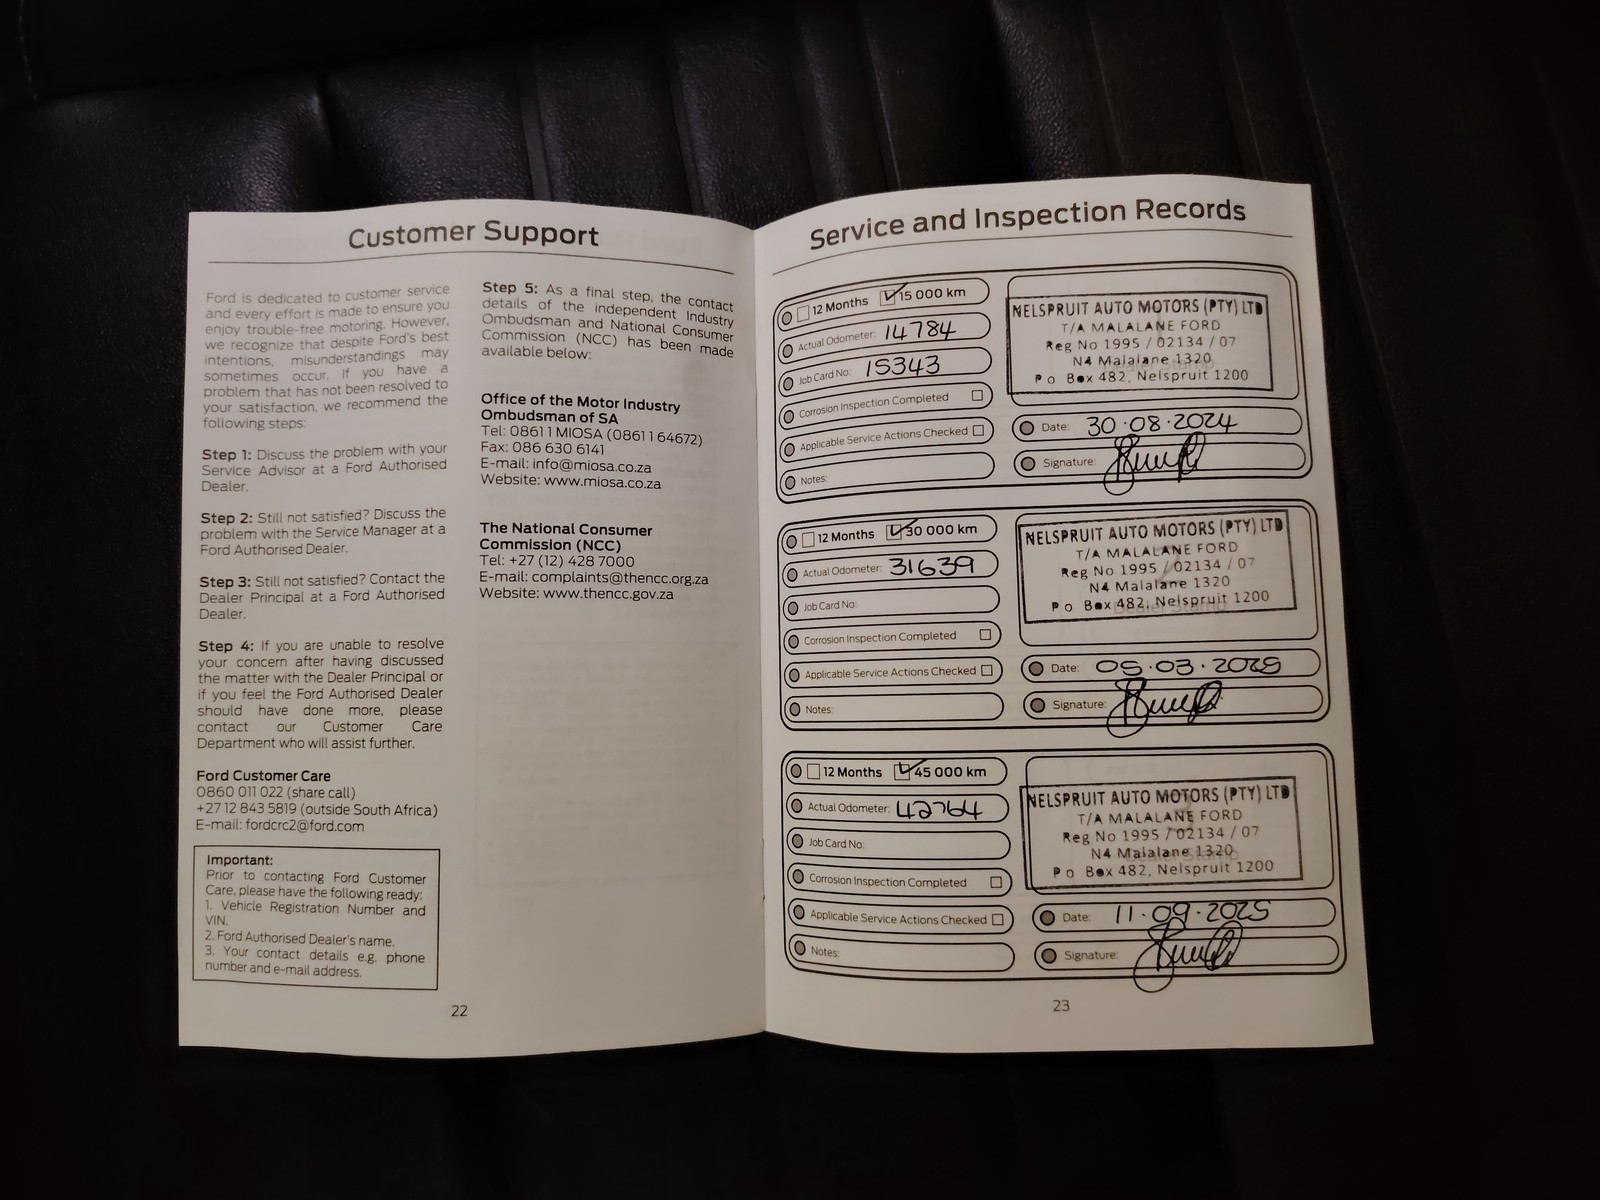 Customer Support
Ford is dedicated to customer service
and every effort is made to ensure you
enjoy trouble-free motoring. However,
we recognize that despite Ford's best
intentions, misunderstandings may
sometimes occur. If you have a
problem that has not been resolved to
your satisfaction, we recommend the
following steps:
Step 1: Discuss the problem with your
Service Advisor at a Ford Authorised
Dealer.
Step 2: Still not satisfied? Discuss the
problem with the Service Manager at a
Ford Authorised Dealer.
Step 3: Still not satisfied? Contact the
Dealer Principal at a Ford Authorised
Dealer.
Step 4: If you are unable to resolve
your concern after having discussed
the matter with the Dealer Principal or
if you feel the Ford Authorised Dealer
should have done more, please
contact our Customer Care
Department who will assist further.
Ford Customer Care
0860 011 022 (share call)
+27 12 843 5819 (outside South Africa)
E-mail: fordcrc2@ford.com
Important:
Prior to contacting Ford Customer
Care, please have the following ready:
1. Vehicle Registration Number and
VIN.
2. Ford Authorised Dealer's name.
3. Your contact details e.g. phone
number and e-mail address.
Step 5: As a final step, the contact
details of the independent Industry
Ombudsman and National Consumer
Commission (NCC) has been made
available below:
Office of the Motor Industry
Ombudsman of SA
Tel: 0861 1 MIOSA (0861 1 64672)
Fax: 086 630 6141
E-mail: info@miosa.co.za
Website: www.miosa.co.za
The National Consumer
Commission (NCC)
Tel: +27 (12) 428 7000
E-mail: complaints@thencc.org.za
Website: www.thencc.gov.za
22
Service and Inspection Records
12 Months 15 000 km
Actual Odometer: 14784
Job Card No: 15343
Corrosion Inspection Completed
Applicable Service Actions Checked
Notes:
NELSPRUIT AUTO MOTORS (PTY) LTD
T/A MALALANE FORD
Reg No 1995 / 02134 / 07
N4 Malalane 1320
P o Box 482, Nelspruit 1200
Dealer Stamp
Date: 30.08.2024
Signature:
12 Months 30 000 km
Actual Odometer: 31639
Job Card No:
Corrosion Inspection Completed
Applicable Service Actions Checked
Notes:
NELSPRUIT AUTO MOTORS (PTY) LTD
T/A MALALANE FORD
Reg No 1995 / 02134 / 07
N4 Malalane 1320
P o Box 482, Nelspruit 1200
Dealer Stamp
Date: 05.03.2025
Signature:
12 Months 45 000 km
Actual Odometer: 42764
Job Card No:
Corrosion Inspection Completed
Applicable Service Actions Checked
Notes:
NELSPRUIT AUTO MOTORS (PTY) LTD
T/A MALALANE FORD
Reg No 1995 / 02134 / 07
N4 Malalane 1320
P o Box 482, Nelspruit 1200
Dealer Stamp
Date: 11.09.2025
Signature:
23